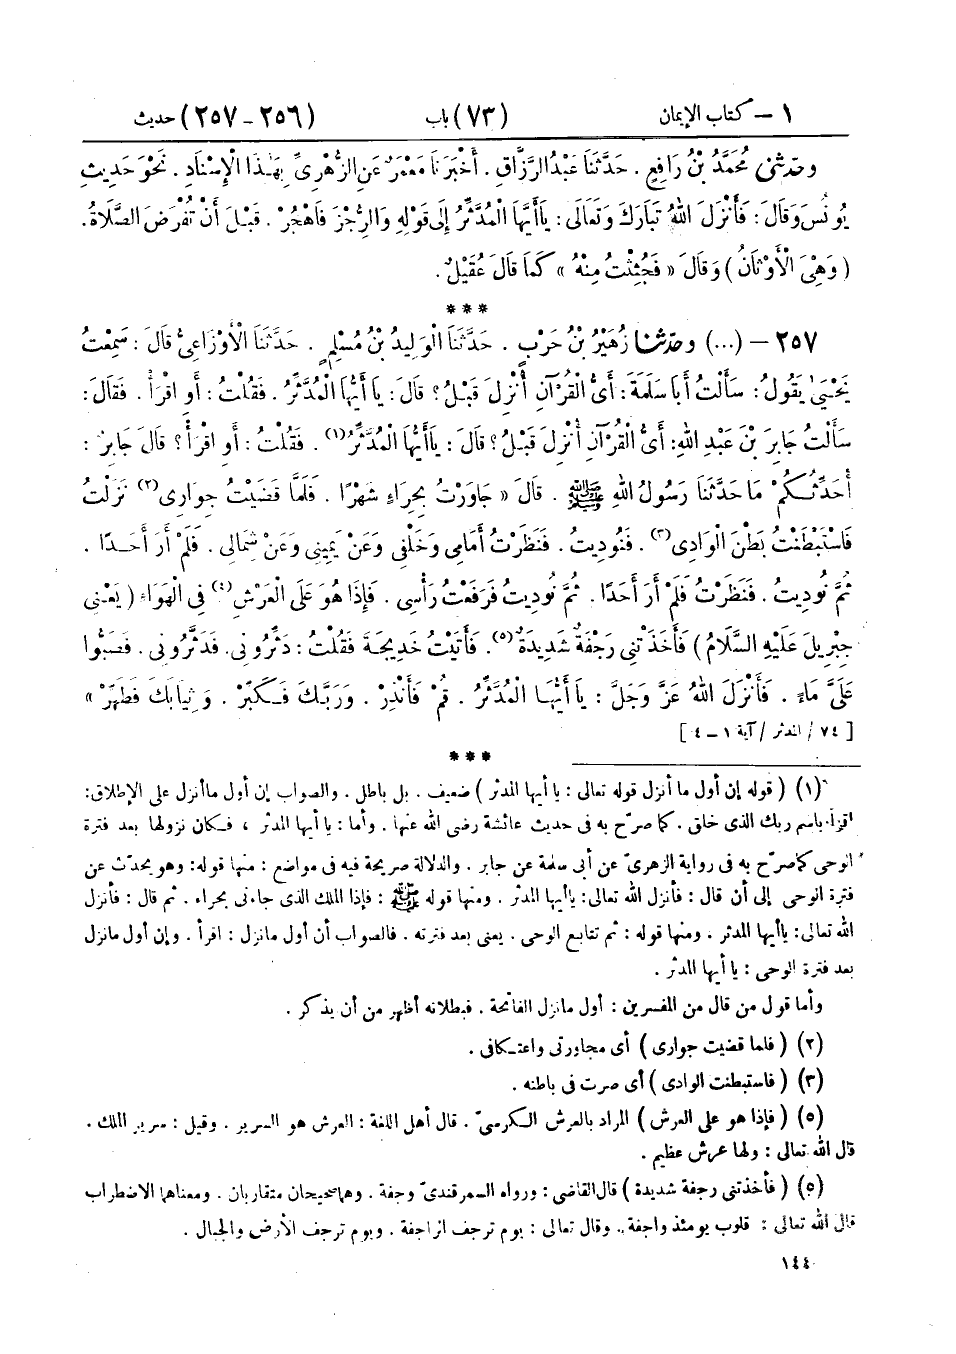 ١ – كتاب الإيمان (٧٣) باب (٢٥٦ – ٢٥٧) حديث
وحَدَّثَنِي مُحَمَّدُ بْنُ رَافِعٍ . حَدَّثَنَا عَبْدُ الرَّزَّاقِ . أَخْبَرَنَا مَعْمَرٌ عَنِ الزُّهْرِيِّ بِهَذَا الْإِسْنَادِ . نَحْوَ حَدِيثِ
يُونُسَ وَقَالَ : فَأَنْزَلَ اللهُ تَبَارَكَ وَتَعَالَى : يَا أَيُّهَا الْمُدَّثِّرُ إِلَى قَوْلِهِ وَالرُّجْزَ فَاهْجُرْ . قَبْلَ أَنْ تُفْرَضَ الصَّلَاةُ .
( وَهِيَ الْأَوْثَانُ ) وَقَالَ « فَجُثِثْتُ مِنْهُ » كَمَا قَالَ عُقَيْلٌ .
***
٢٥٧ – (...) وحَدَّثَنَا زُهَيْرُ بْنُ حَرْبٍ . حَدَّثَنَا الْوَلِيدُ بْنُ مُسْلِمٍ . حَدَّثَنَا الْأَوْزَاعِيُّ قَالَ : سَمِعْتُ
يَحْيَى يَقُولُ : سَأَلْتُ أَبَا سَلَمَةَ : أَيُّ الْقُرْآنِ أُنْزِلَ قَبْلُ ؟ قَالَ : يَا أَيُّهَا الْمُدَّثِّرُ . فَقُلْتُ : أَوِ اقْرَأْ . فَقَالَ :
سَأَلْتُ جَابِرَ بْنَ عَبْدِ اللهِ : أَيُّ الْقُرْآنِ أُنْزِلَ قَبْلُ ؟ قَالَ : يَا أَيُّهَا الْمُدَّثِّرُ(١) . فَقُلْتُ : أَوِ اقْرَأْ ؟ قَالَ جَابِرٌ :
أُحَدِّثُكُمْ مَا حَدَّثَنَا رَسُولُ اللهِ ﷺ . قَالَ « جَاوَرْتُ بِحِرَاءٍ شَهْرًا . فَلَمَّا قَضَيْتُ جِوَارِي(٢) نَزَلْتُ
فَاسْتَبْطَنْتُ بَطْنَ الْوَادِي(٣) . فَنُودِيتُ . فَنَظَرْتُ أَمَامِي وَخَلْفِي وَعَنْ يَمِينِي وَعَنْ شِمَالِي . فَلَمْ أَرَ أَحَدًا .
ثُمَّ نُودِيتُ . فَنَظَرْتُ فَلَمْ أَرَ أَحَدًا . ثُمَّ نُودِيتُ فَرَفَعْتُ رَأْسِي . فَإِذَا هُوَ عَلَى الْعَرْشِ(٤) فِي الْهَوَاءِ ( يَعْنِي
جِبْرِيلَ عَلَيْهِ السَّلَامُ ) فَأَخَذَتْنِي رَجْفَةٌ شَدِيدَةٌ(٥) . فَأَتَيْتُ خَدِيجَةَ فَقُلْتُ : دَثِّرُونِي . فَدَثَّرُونِي . فَصَبُّوا
عَلَيَّ مَاءً . فَأَنْزَلَ اللهُ عَزَّ وَجَلَّ : يَا أَيُّهَا الْمُدَّثِّرُ . قُمْ فَأَنْذِرْ . وَرَبَّكَ فَكَبِّرْ . وَثِيَابَكَ فَطَهِّرْ »
[ ٧٤ / المدثر / آية ١ – ٤ ]
***
(١) ( قوله إن أول ما أنزل قوله تعالى : يا أيها المدثر ) ضعيف . بل باطل . والصواب إن أول ما أنزل على الإطلاق :
اقرأ باسم ربك الذي خلق . كما صرّح به في حديث عائشة رضي الله عنها . وأما : يا أيها المدثر ، فكان نزولها بعد فترة
الوحي كما صرّح به في رواية الزهريّ عن أبي سلمة عن جابر . والدلالة صريحة فيه في مواضع : منها قوله : وهو يحدّث عن
فترة الوحي إلى أن قال : فأنزل الله تعالى : يا أيها المدثر . ومنها قوله ﷺ : فإذا الملك الذي جاءني بحراء . ثم قال : فأنزل
الله تعالى : يا أيها المدثر . ومنها قوله : ثم تتابع الوحي . يعني بعد فترته . فالصواب أن أول ما نزل : اقرأ . وإن أول ما نزل
بعد فترة الوحي : يا أيها المدثر .
وأما قول من قال من المفسرين : أول ما نزل الفاتحة . فبطلانه أظهر من أن يذكر .
(٢) ( فلما قضيت جواري ) أي مجاورتي واعتكافي .
(٣) ( فاستبطنت الوادي ) أي صرت في باطنه .
(٥) ( فإذا هو على العرش ) المراد بالعرش الكرسيّ . قال أهل اللغة : العرش هو السرير . وقيل : سرير الملك .
قال الله تعالى : ولها عرش عظيم .
(٥) ( فأخذتني رجفة شديدة ) قال القاضي : ورواه السمرقنديّ وجفة . وهما صحيحان متقاربان . ومعناهما الاضطراب
قال الله تعالى : قلوب يومئذ واجفة . وقال تعالى : يوم ترجف الراجفة . ويوم ترجف الأرض والجبال .
١٤٤